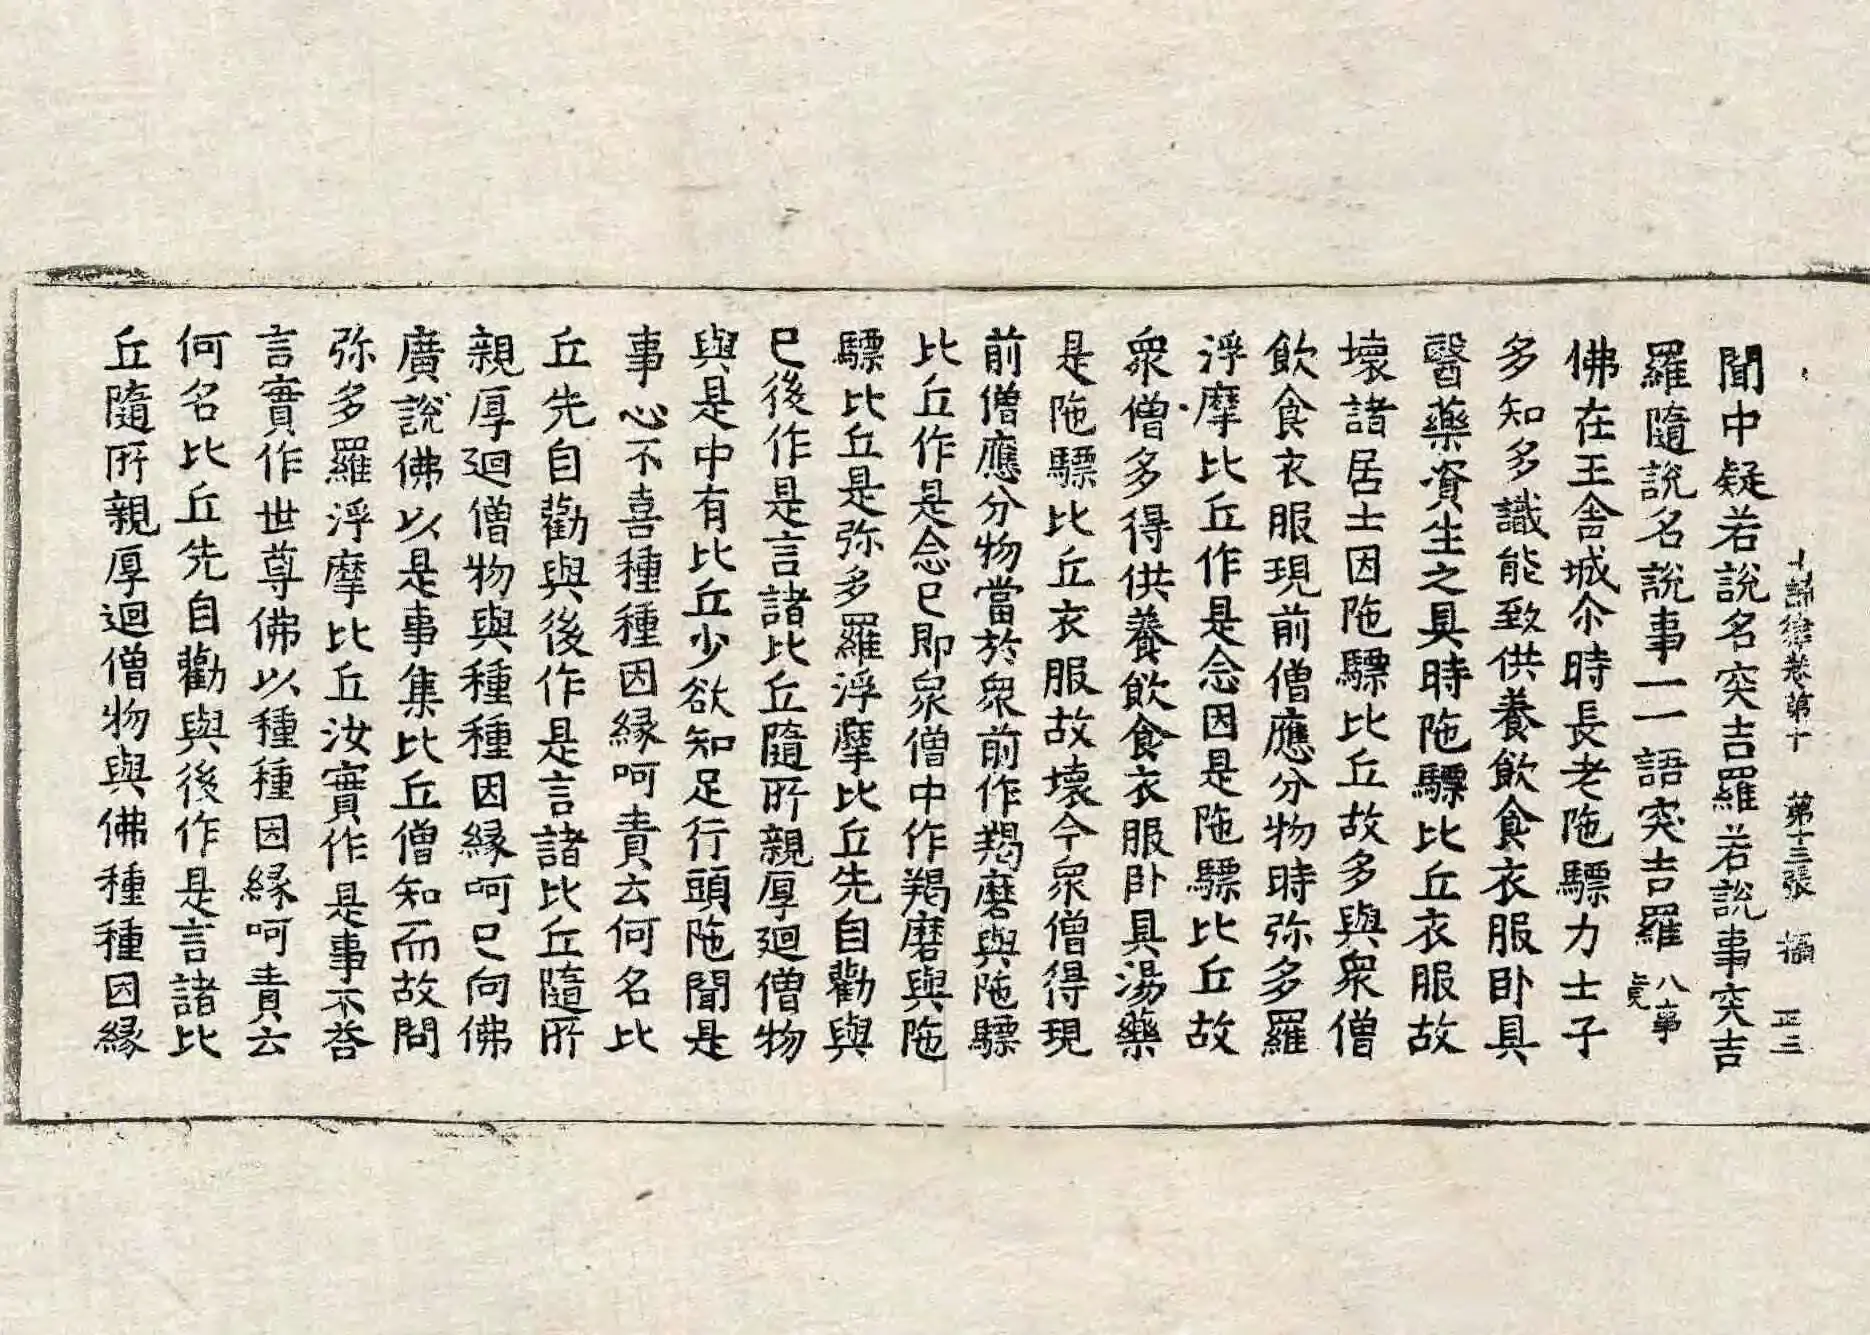 十誦律卷第十 第十三張 攝 正三
聞中疑若說名突吉羅若說事突吉
羅隨說名說事一一語突吉羅 八事竟
佛在王舍城尒時長老陁驃力士子
多知多識能致供養飲食衣服卧具
醫藥資生之具時陁驃比丘衣服故
壞諸居士因陁驃比丘故多與衆僧
飲食衣服現前僧應分物時弥多羅
浮摩比丘作是念因是陁驃比丘故
衆僧多得供養飲食衣服卧具湯藥
是陁驃比丘衣服故壞今衆僧得現
前僧應分物當於衆前作羯磨與陁驃
比丘作是念已即衆僧中作羯磨與陁
驃比丘是弥多羅浮摩比丘先自勸與
已後作是言諸比丘隨所親厚迴僧物
與是中有比丘少欲知足行頭陁聞是
事心不喜種種因緣呵責云何名比
丘先自勸與後作是言諸比丘隨所
親厚迴僧物與種種因緣呵已向佛
廣說佛以是事集比丘僧知而故問
弥多羅浮摩比丘汝實作是事不荅
言實作世尊佛以種種因緣呵責云
何名比丘先自勸與後作是言諸比
丘隨所親厚迴僧物與佛種種因緣